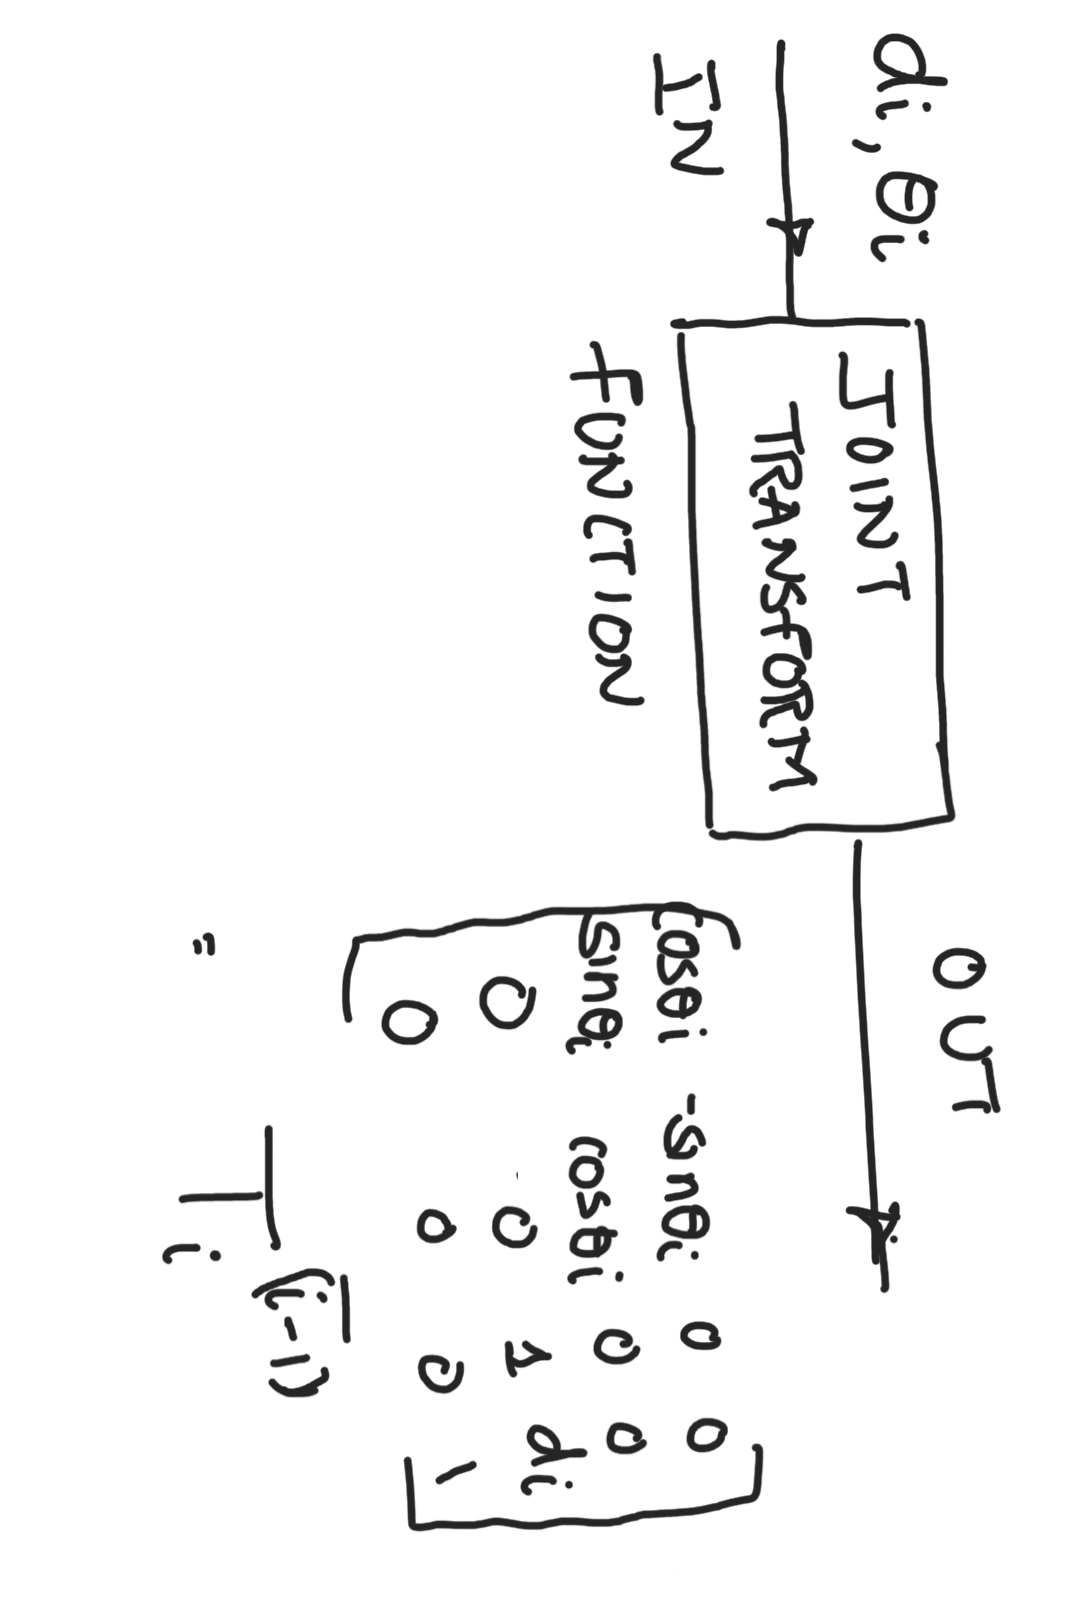 di, θi
IN
JOINT
TRANSFORM
FUNCTION
OUT
cosθi -sinθi 0 0
sinθi cosθi 0 0
0 0 1 di
0 0 0 1
= T i (i-1)